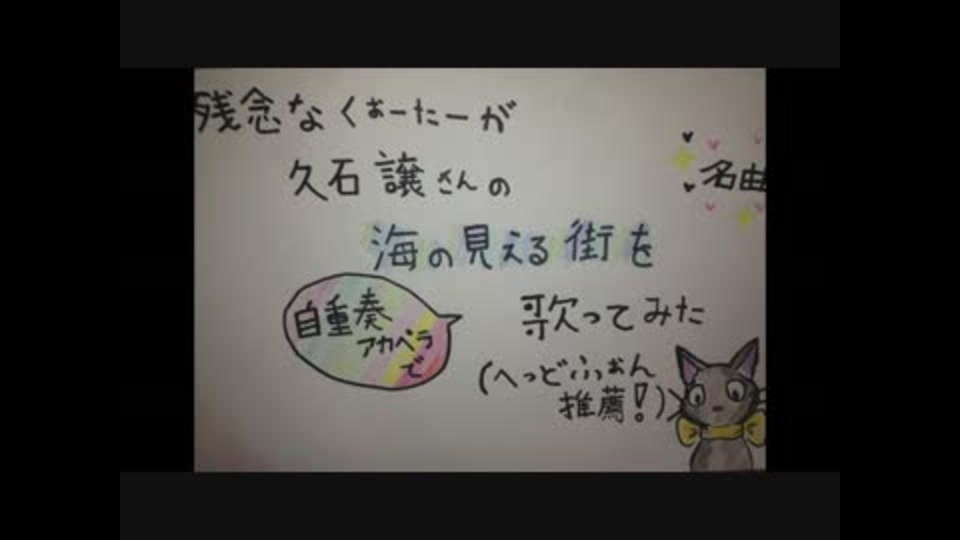 残念なくぉーたーが
久石 譲さんの
名曲
海の見える街を
自重奏
アカペラ
で
歌ってみた
(へっどふぉん
推薦!)